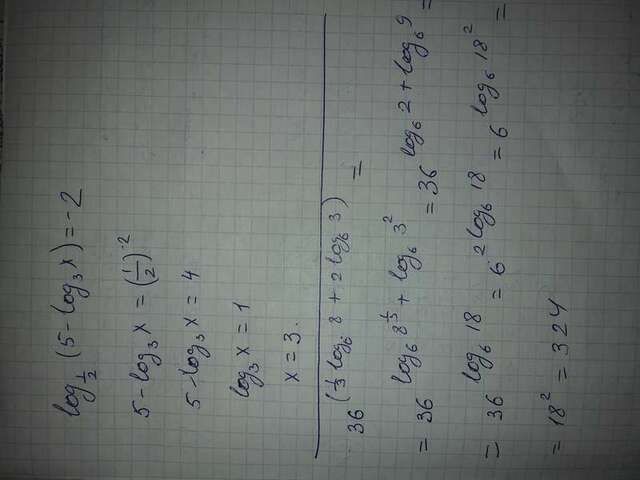 log_{1/2} (5 - log_3 x) = -2
5 - log_3 x = (1/2)^{-2}
5 - log_3 x = 4
log_3 x = 1
x = 3.
36^{(1/3 log_6 8 + 2 log_6 3)} =
= 36^{log_6 8^{1/3} + log_6 3^2} = 36^{log_6 2 + log_6 9} =
= 36^{log_6 18} = 6^{2 log_6 18} = 6^{log_6 18^2} =
= 18^2 = 324